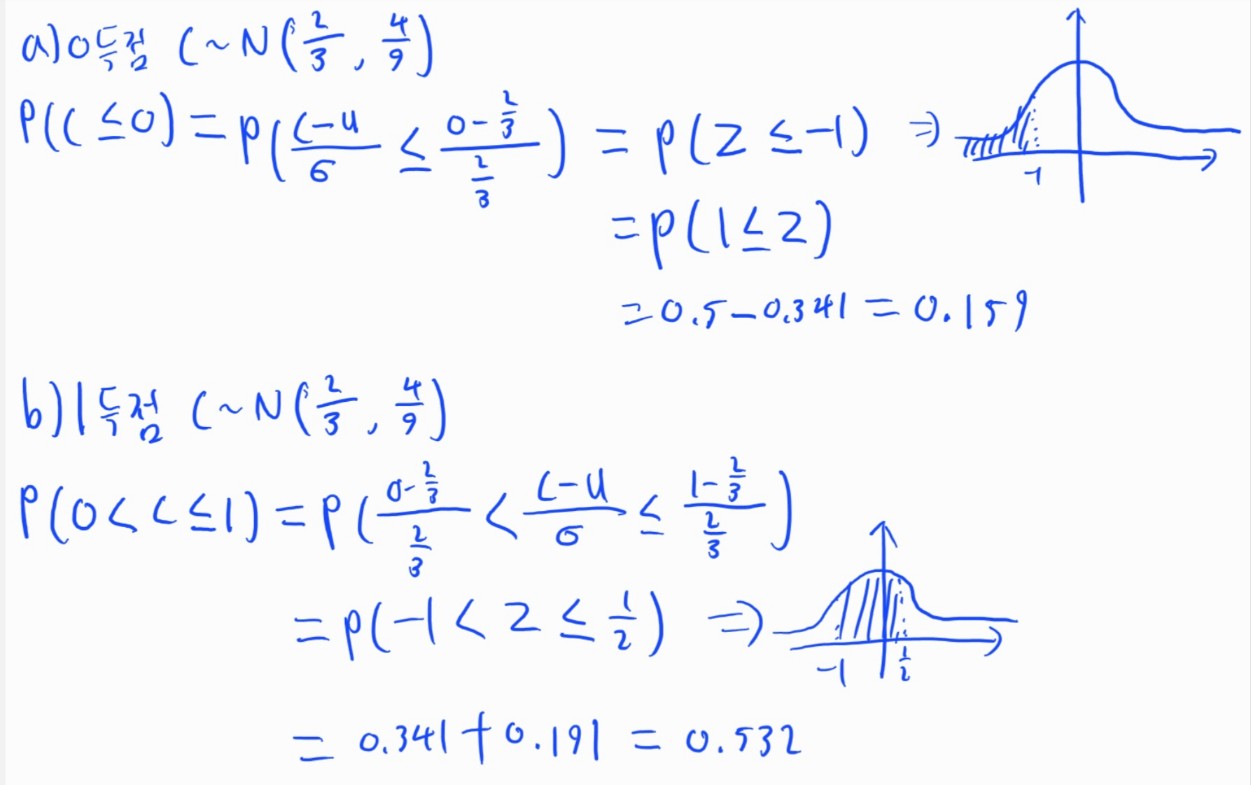 a) 0득점 C ~ N(2/3, 4/9)
P(C ≤ 0) = P((C-μ)/σ ≤ (0-2/3)/(2/3)) = P(Z ≤ -1) ⇒
-1
= P(1 ≤ Z)
= 0.5 - 0.341 = 0.159
b) 1득점 C ~ N(2/3, 4/9)
P(0 < C ≤ 1) = P((0-2/3)/(2/3) < (C-μ)/σ ≤ (1-2/3)/(2/3))
= P(-1 < Z ≤ 1/2) ⇒
-1 1/2
= 0.341 + 0.191 = 0.532